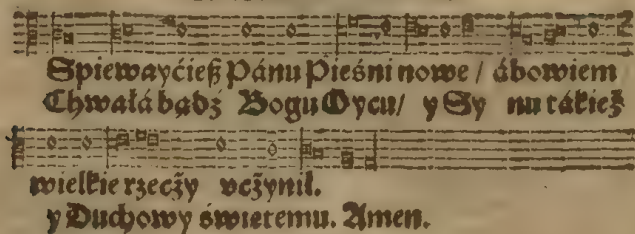 Spiewayćieß Pánu Pieśni nowe / ábowiem
Chwałá bądź Bogu Oycu / y Sy nu tákież
wielkie rzecży vcżynił.
y Duchowy świetemu. Amen.